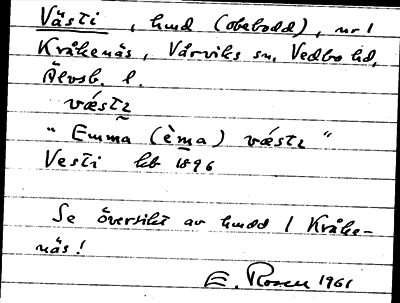 Västi, hmd (obebodd), nr 1
Kråkenäs, Vårviks sn, Vedbo hd,
Älvsb. l.
vǽstɩ
"Emma (èma) vǽstɩ"
Vesti hb 1896
Se översikt av hmdd / Kråke-
näs!
E. Rosen 1961